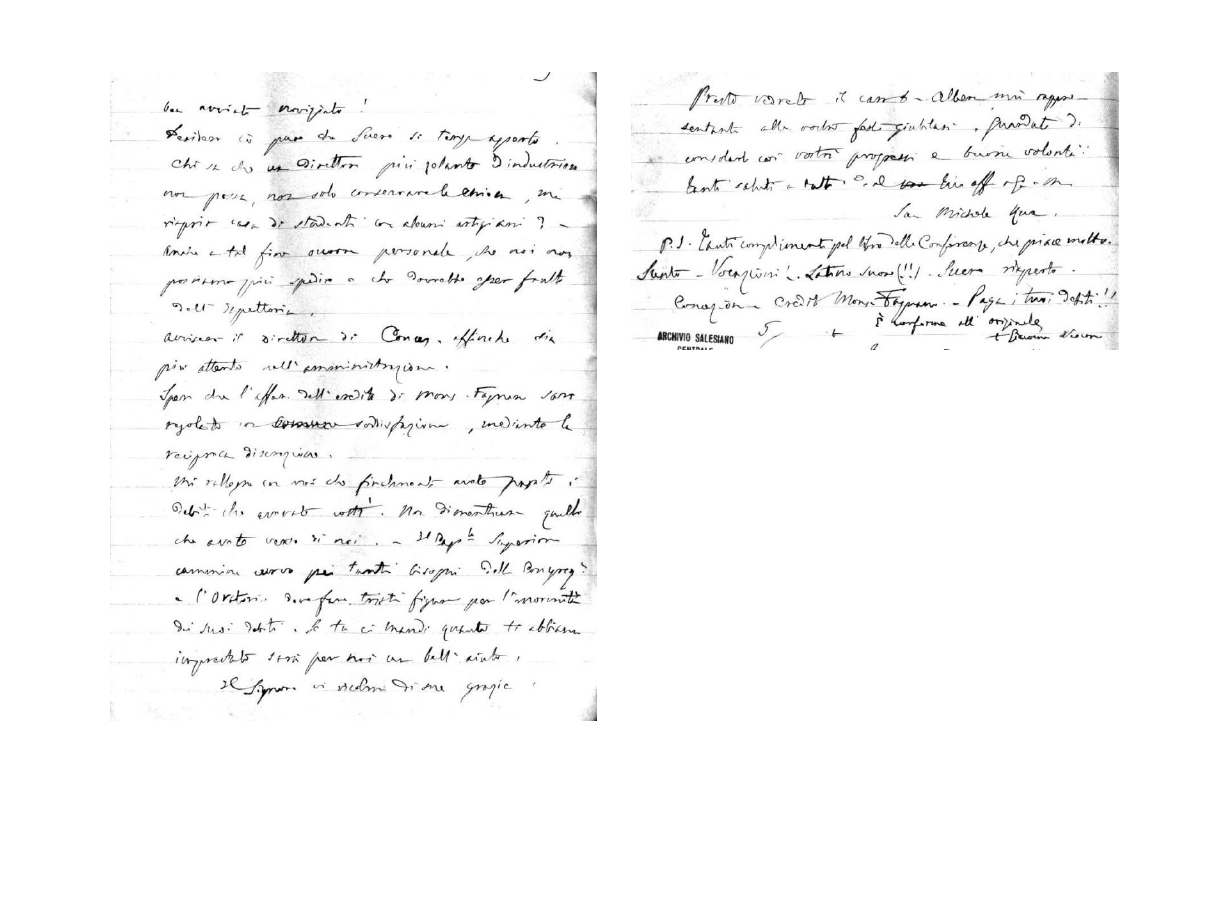 ben avviato noviziato!
Desidero ciò pure che Sucre si tenga aperto.
Chi sa che un Direttore più zelante ed industrioso
non possa, non solo conservare la chiesa, ma
riaprir casa di studenti con alcuni artigiani? -
Anche a tal fine occorre personale, che noi non
possiamo più spedire e che dovrebbe esser frutto
dell'Ispettoria.
Avvisa il Direttore di Concez. affinché sia
più attento nell'amministrazione.
Spero che l'affare dell'eredità di Mons. Fagnano sarà
regolato con comune soddisfazione, mediante la
reciproca discrezione.
Mi rallegro con voi che finalmente avete pagati i
debiti che avevate costì. Non dimenticare quello
che avete verso di noi. - Il Cap.lo Superiore
cammina curvo pei tanti bisogni della Congreg.
e l'Oratorio deve fare triste figura per l'enormità
dei suoi debiti. Se tu ci mandi quanto ti abbiamo
imprestato sarà per noi un bell'aiuto.
Il Signore vi ricolmi di sue grazie.
Presto vedrete il caro D. Albera mio rappre-
sentante alle vostre feste giubilari. Guardate di
consolarlo coi vostri progressi e buona volontà.
Tanti saluti a tutti dal tuo aff. in
San Michele Rua.
P.S. Tanti complimenti pel libro delle Conferenze, che piace molto.
Santo - Vocazioni! Latino suona (!!). Sucre riaperto.
Concezione - Credito Mons. Fagnano. - Paga i tuoi debiti!!
È conforme all'originale
5/ +
ARCHIVIO SALESIANO
CENTRALE